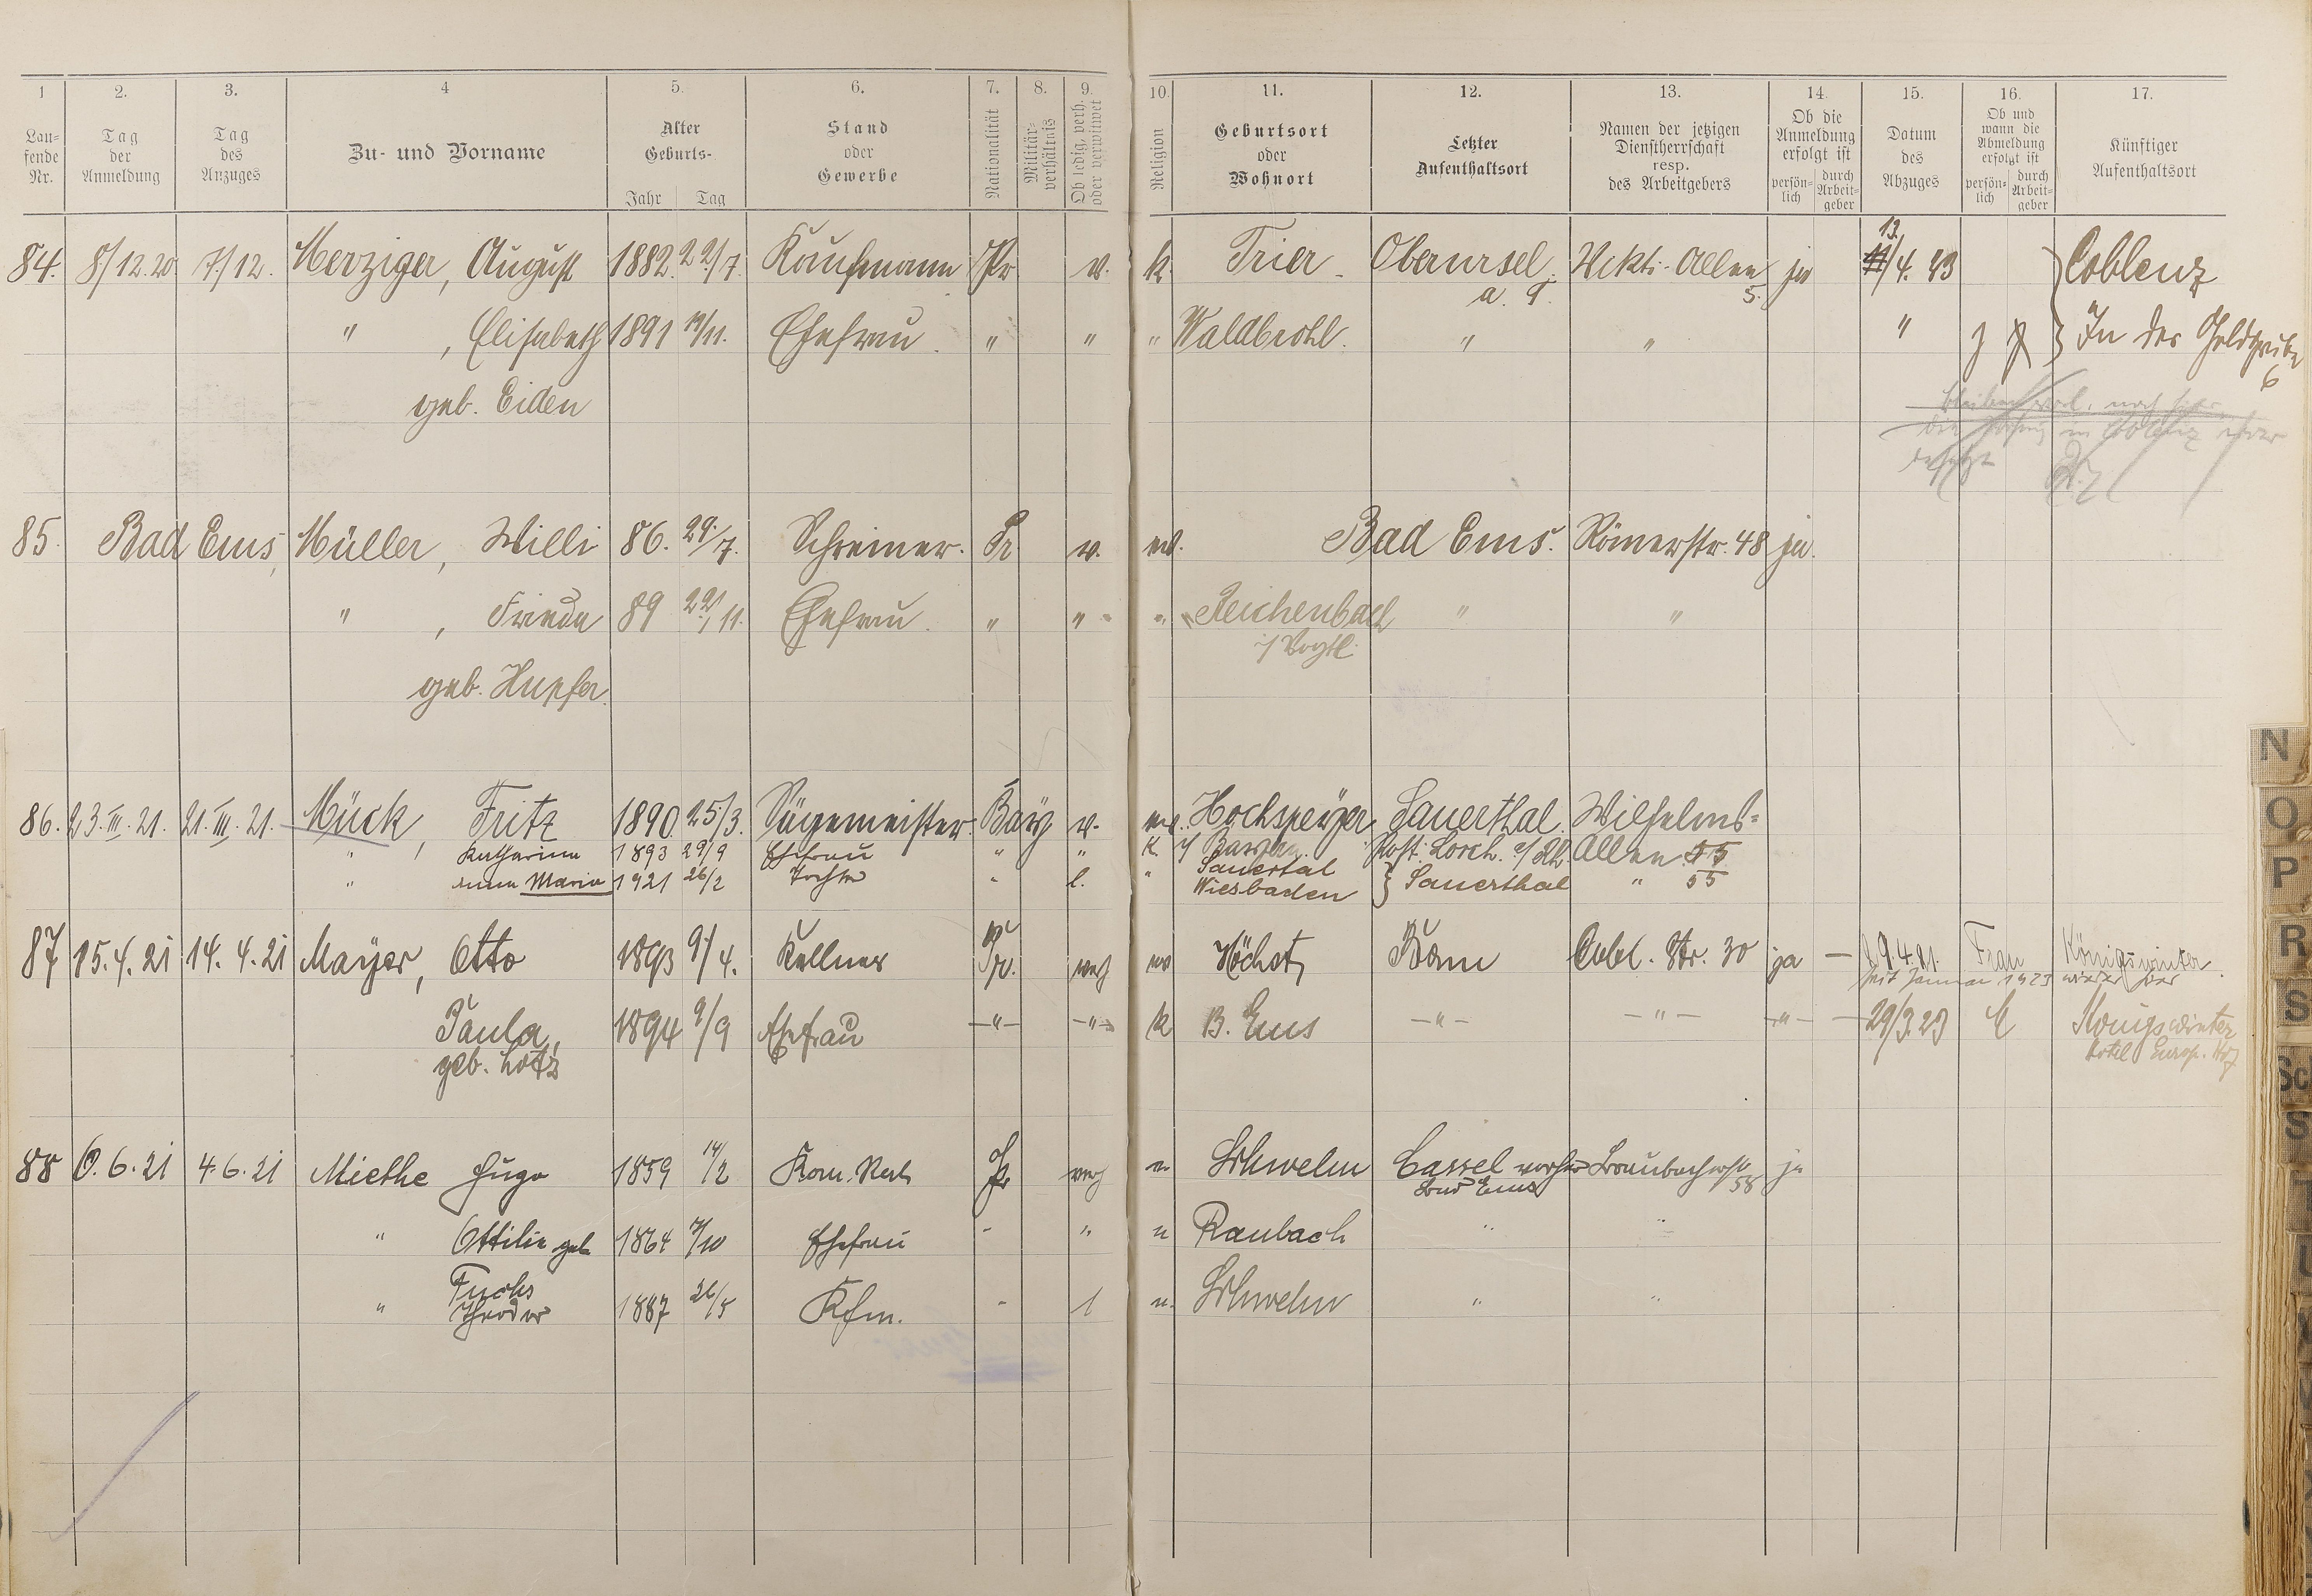 1 2. 3. 4 5. 6. 7. 8. 9. 10. 11. 12. 13. 14. 15. 16. 17.
Laufende Nr. Tag der Anmeldung Tag des Anzuges Zu- und Vorname Alter Geburts- Jahr Tag Stand oder Gewerbe Nationalität Militärverhältnis Ob ledig, verh. oder verwitwet Religion Geburtsort oder Wohnort Letzter Aufenthaltsort Namen der jetzigen Dienstherrschaft resp. des Arbeitgebers Ob die Anmeldung erfolgt ist persönlich durch Arbeitgeber Datum des Abzuges Ob und wann die Abmeldung erfolgt ist persönlich durch Arbeitgeber Künftiger Aufenthaltsort
84. 8/12.20 7./12. Merziger, August 1882. 22./7. Kaufmann Pr v. k. Trier Oberursel a. T. Vikt.-Allee 5. ja 13./4. 23 Coblenz
" , Elisabeth 1891 19/11. Ehefrau. " " " Waldbrohl. " " " In der Goldgrube 6
geb. Eiden
85. Bad Ems, Müller, Willi 86. 29./7. Schreiner. Pr. v. ev. Bad Ems. Römerstr. 48 ja.
" , Frieda 89 22/11. Ehefrau. " " " Reichenbach " "
i/Vogtl.
geb. Hupfer.
86. 23.III.21. 21.III.21. Mück, Fritz 1890 25./3. Sägemeister. Bay v. ev. Hochspeyer Sauerthal. Wilhelms-
" Katharina 1893 29/9 Ehefrau " " K. i/ Bayern. Post: Lorch a/Rh. Allee 55
" Maria 1921 26/2 Tochter " l. " Sauertal Wiesbaden } Sauerthal " 55
87 15.4.21 14.4.21 Mayer, Otto 1893 9/4. Kellner Pr. verh ev Höchst, Bonn Cobl. Str. 30 ja — 29.4.21. Frau Königswinter
seit Januar 1923 wieder hier
Paula, 1894 9/9 Ehefrau —"— —"— k B. Ems —"— —"— —"— 29/3.23 Königswinter
geb. Lotz Hotel Europ. Hof
88 6.6.21 4.6.21 Miethe Hugo 1859 14/2 Pr verh Schwelm Cassel vorher Braubacherstr 58 ja
Bad Ems
" Ottilie geb 1864 /10 Ehefrau " " Raubach " "
Fuchs
" Theodor 1887 26/5 Kfm. " l Schwelm " "
N
O
P
R
S
Sc
S